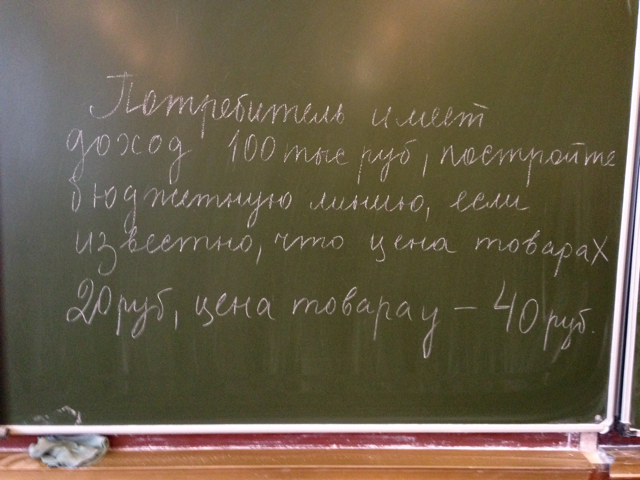 Потребитель имеет
доход 100 тыс руб, постройте
бюджетную линию, если
известно, что цена товара X
20 руб, цена товара y – 40 руб.